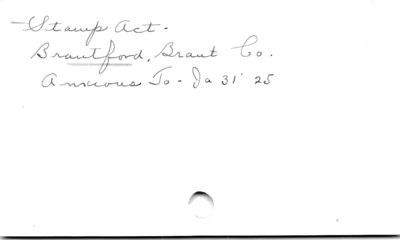 Stamp Act.
Brantford, Brant Co.
Anxious To - Ja 31 '25